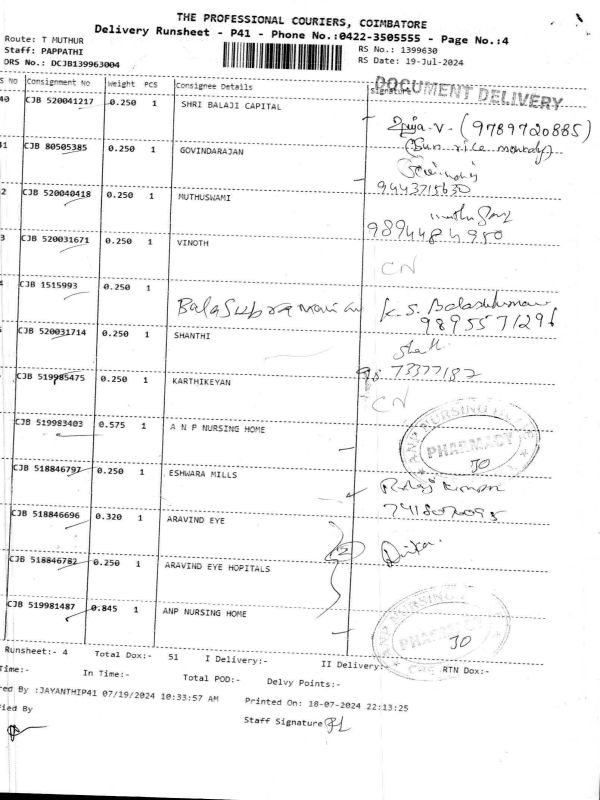 THE PROFESSIONAL COURIERS, COIMBATORE
Delivery Runsheet - P41 - Phone No.:0422-3505555 - Page No.:4
Route: T MUTHUR
Staff: PAPPATHI
DRS No.: DCJB139963004
RS No.: 1399630
RS Date: 19-Jul-2024
DOCUMENT DELIVERY
S No Consignment No Weight PCS Consignee Details Signature
40 CJB 520041217 0.250 1 SHRI BALAJI CAPITAL
(9789720885)
41 CJB 80505385 0.250 1 GOVINDARAJAN
9443715630
2 CJB 520040418 0.250 1 MUTHUSWAMI
9894484950
3 CJB 520031671 0.250 1 VINOTH CN
4 CJB 1515993 0.250 1
Balasubramanian K.S. Balasubramani
9895571296
CJB 520031714 0.250 1 SHANTHI
98 73377187
CJB 519985475 0.250 1 KARTHIKEYAN CN
CJB 519983403 0.575 1 A N P NURSING HOME
ANP NURSING
PHARMACY
JO
CJB 518846797 0.250 1 ESHWARA MILLS
CJB 518846696 0.320 1 ARAVIND EYE
2
CJB 518846782 0.250 1 ARAVIND EYE HOPITALS
CJB 519981487 0.845 1 ANP NURSING HOME
ANP NURSING
PHARMACY
JO
Runsheet:- 4 Total Dox:- 51 I Delivery:- II Delivery:- RTN Dox:-
Time:- In Time:- Total POD:- Delvy Points:-
red By :JAYANTHIP41 07/19/2024 10:33:57 AM Printed On: 18-07-2024 22:13:25
fied By Staff Signature